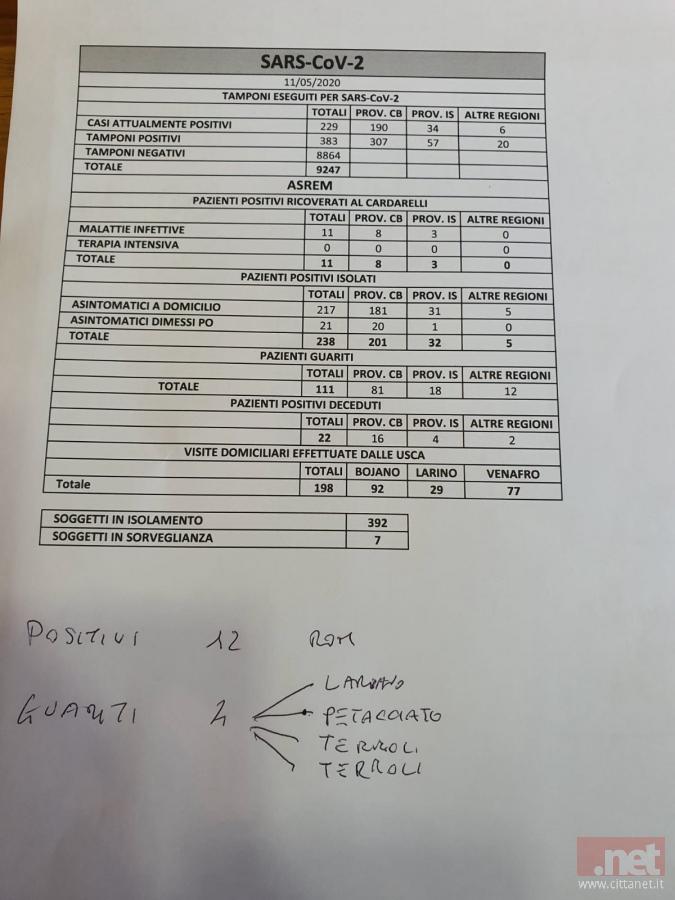 SARS-CoV-2
11/05/2020
TAMPONI ESEGUITI PER SARS-CoV-2
TOTALI PROV. CB PROV. IS ALTRE REGIONI
CASI ATTUALMENTE POSITIVI 229 190 34 6
TAMPONI POSITIVI 383 307 57 20
TAMPONI NEGATIVI 8864
TOTALE 9247
ASREM
PAZIENTI POSITIVI RICOVERATI AL CARDARELLI
TOTALI PROV. CB PROV. IS ALTRE REGIONI
MALATTIE INFETTIVE 11 8 3 0
TERAPIA INTENSIVA 0 0 0 0
TOTALE 11 8 3 0
PAZIENTI POSITIVI ISOLATI
TOTALI PROV. CB PROV. IS ALTRE REGIONI
ASINTOMATICI A DOMICILIO 217 181 31 5
ASINTOMATICI DIMESSI PO 21 20 1 0
TOTALE 238 201 32 5
PAZIENTI GUARITI
TOTALI PROV. CB PROV. IS ALTRE REGIONI
TOTALE 111 81 18 12
PAZIENTI POSITIVI DECEDUTI
TOTALI PROV. CB PROV. IS ALTRE REGIONI
22 16 4 2
VISITE DOMICILIARI EFFETTUATE DALLE USCA
TOTALI BOJANO LARINO VENAFRO
Totale 198 92 29 77
SOGGETTI IN ISOLAMENTO 392
SOGGETTI IN SORVEGLIANZA 7
POSITIVI 12 ROM
GUARITI
PETACCIATO
TERMOLI
TERMOLI
.net
www.cittanet.it